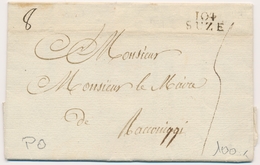 8
104
SUZE
Monsieur
Monsieur le Maire
de Racconiggi
PO
100